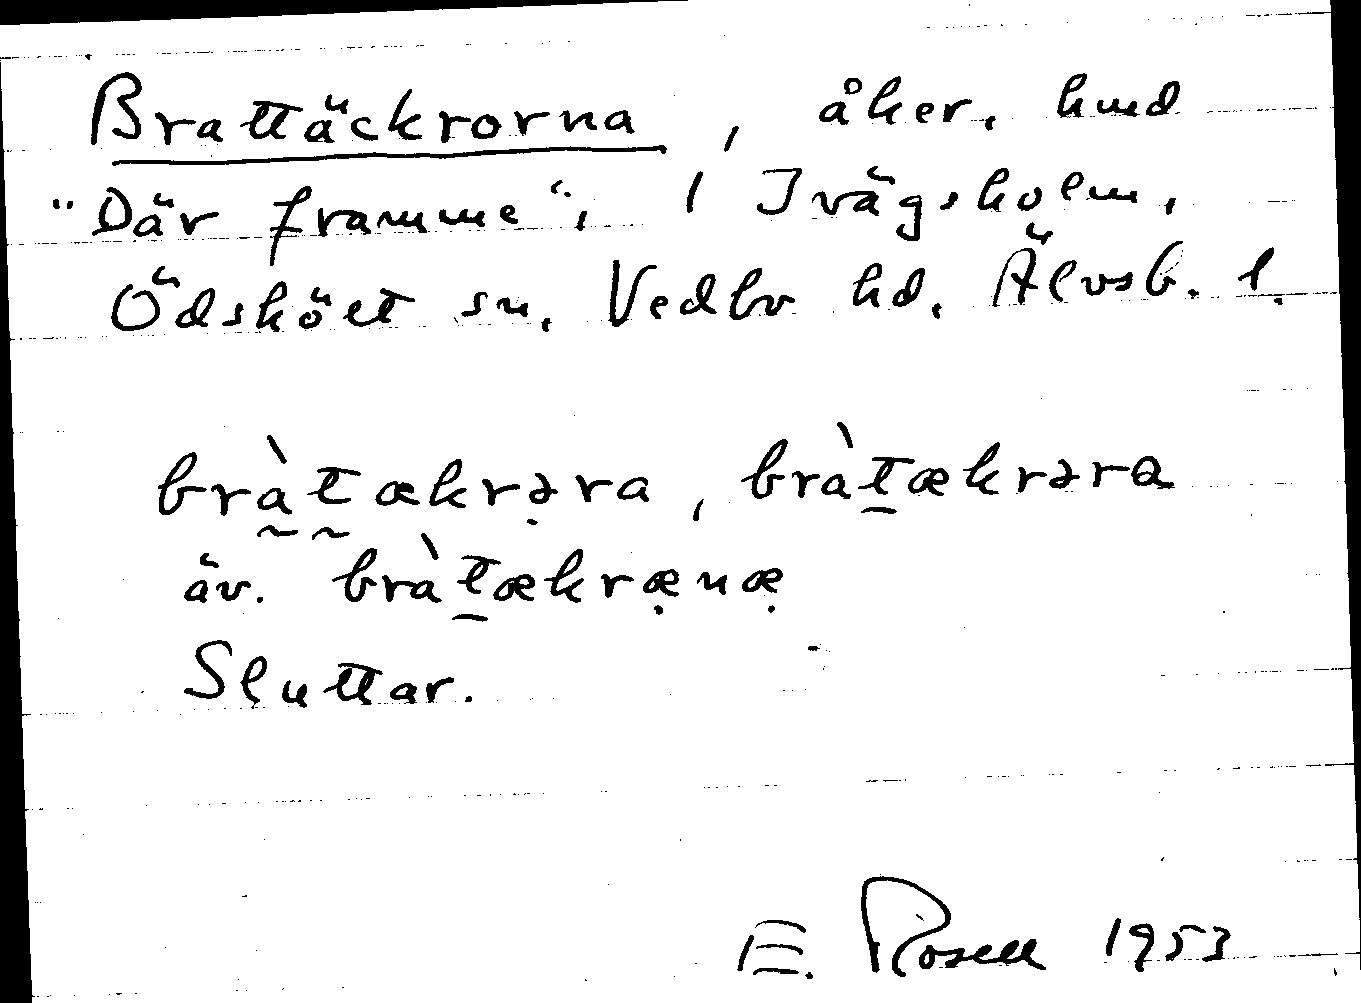 Brattäckrorna, åker, hmd
"Där framme", 1 Ivägsholm,
Ödskölt sn, Vedbo hd, Älvsb. l.
bràtækrəra, bràtækrəra
äv. bràtækrænæ
Sluttar.
E. Rosell 1953